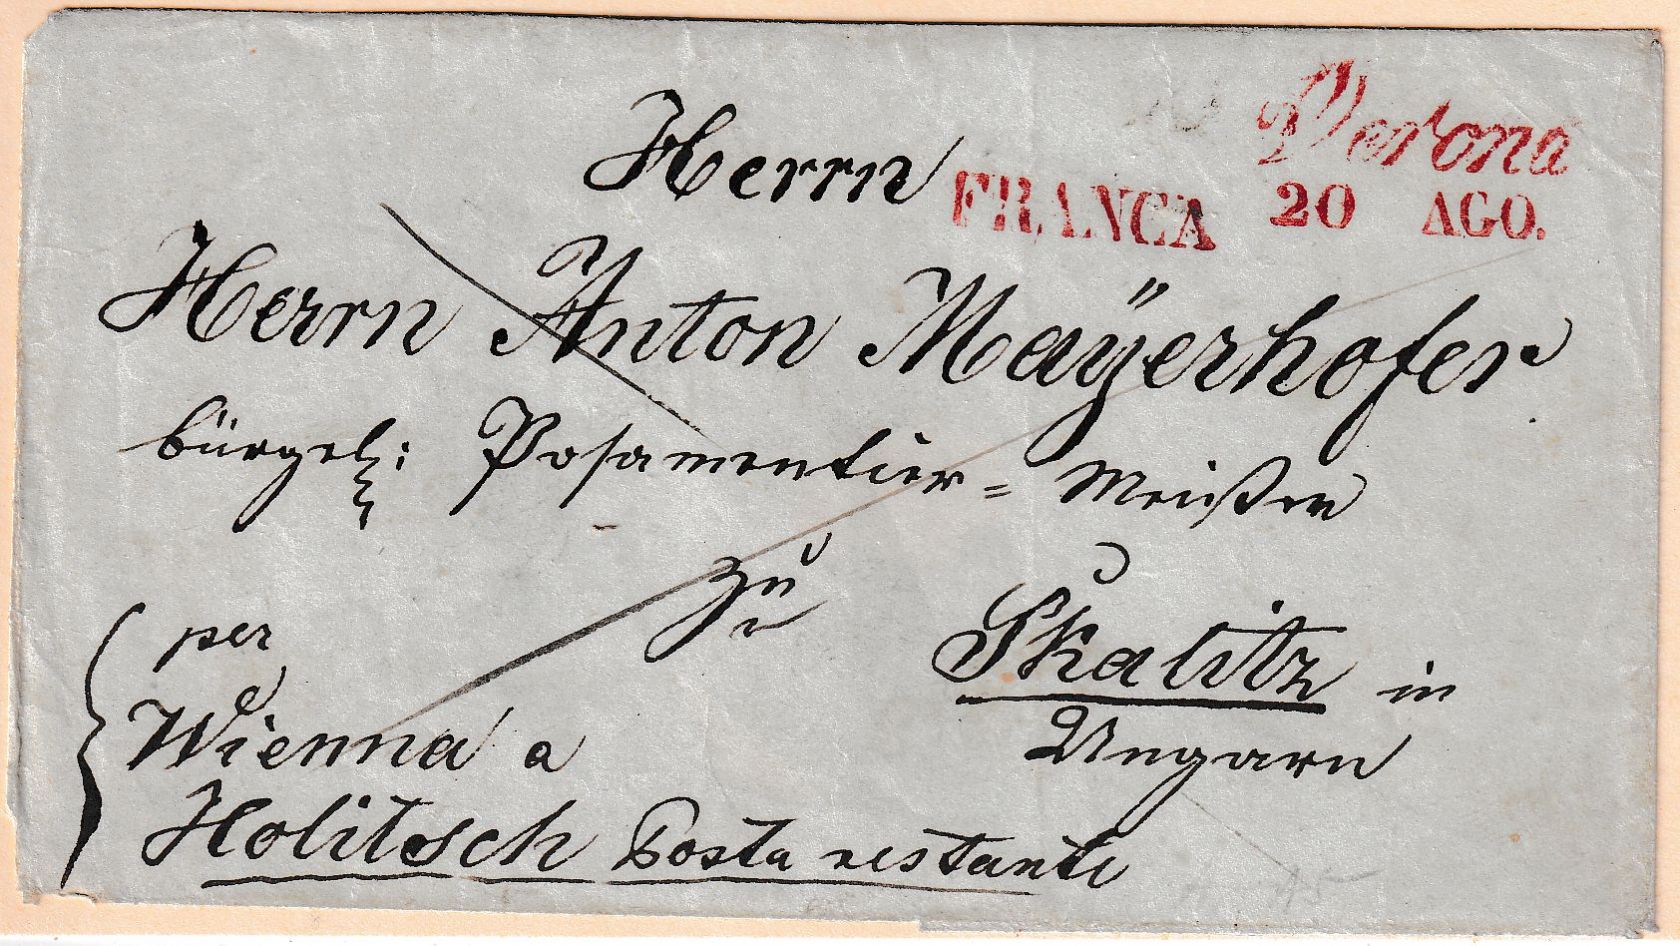 Verona
20 AGO.
FRANCA
Herrn
Herrn Anton Maÿerhofer
bürgerl: Posamentier = Meister
zu
Skalitz in
Ungarn
per
Wienna a
Holitsch Posta restante